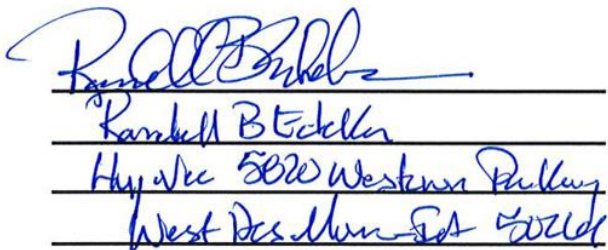 Randall B Edeker
Hy-Vee 5820 Westown Parkway
West Des Moines IA 50266